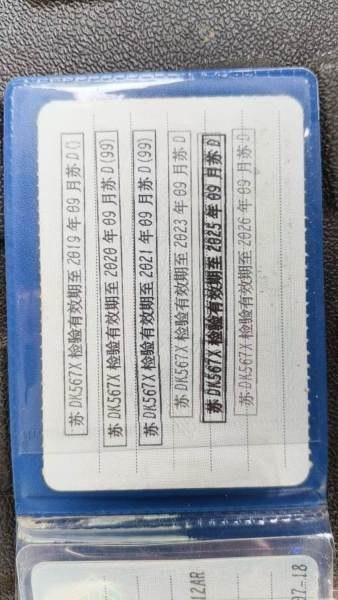 苏 DK567X 检验有效期至 2019 年 09 月苏 D
苏 DK567X 检验有效期至 2020 年 09 月苏 D(99)
苏 DK567X 检验有效期至 2021 年 09 月苏 D(99)
苏 DK567X 检验有效期至 2023 年 09 月苏 D
苏 DK567X 检验有效期至 2025 年 09 月苏 D
苏 DK567X 检验有效期至 2026 年 09 月苏 D
12AR
07-18